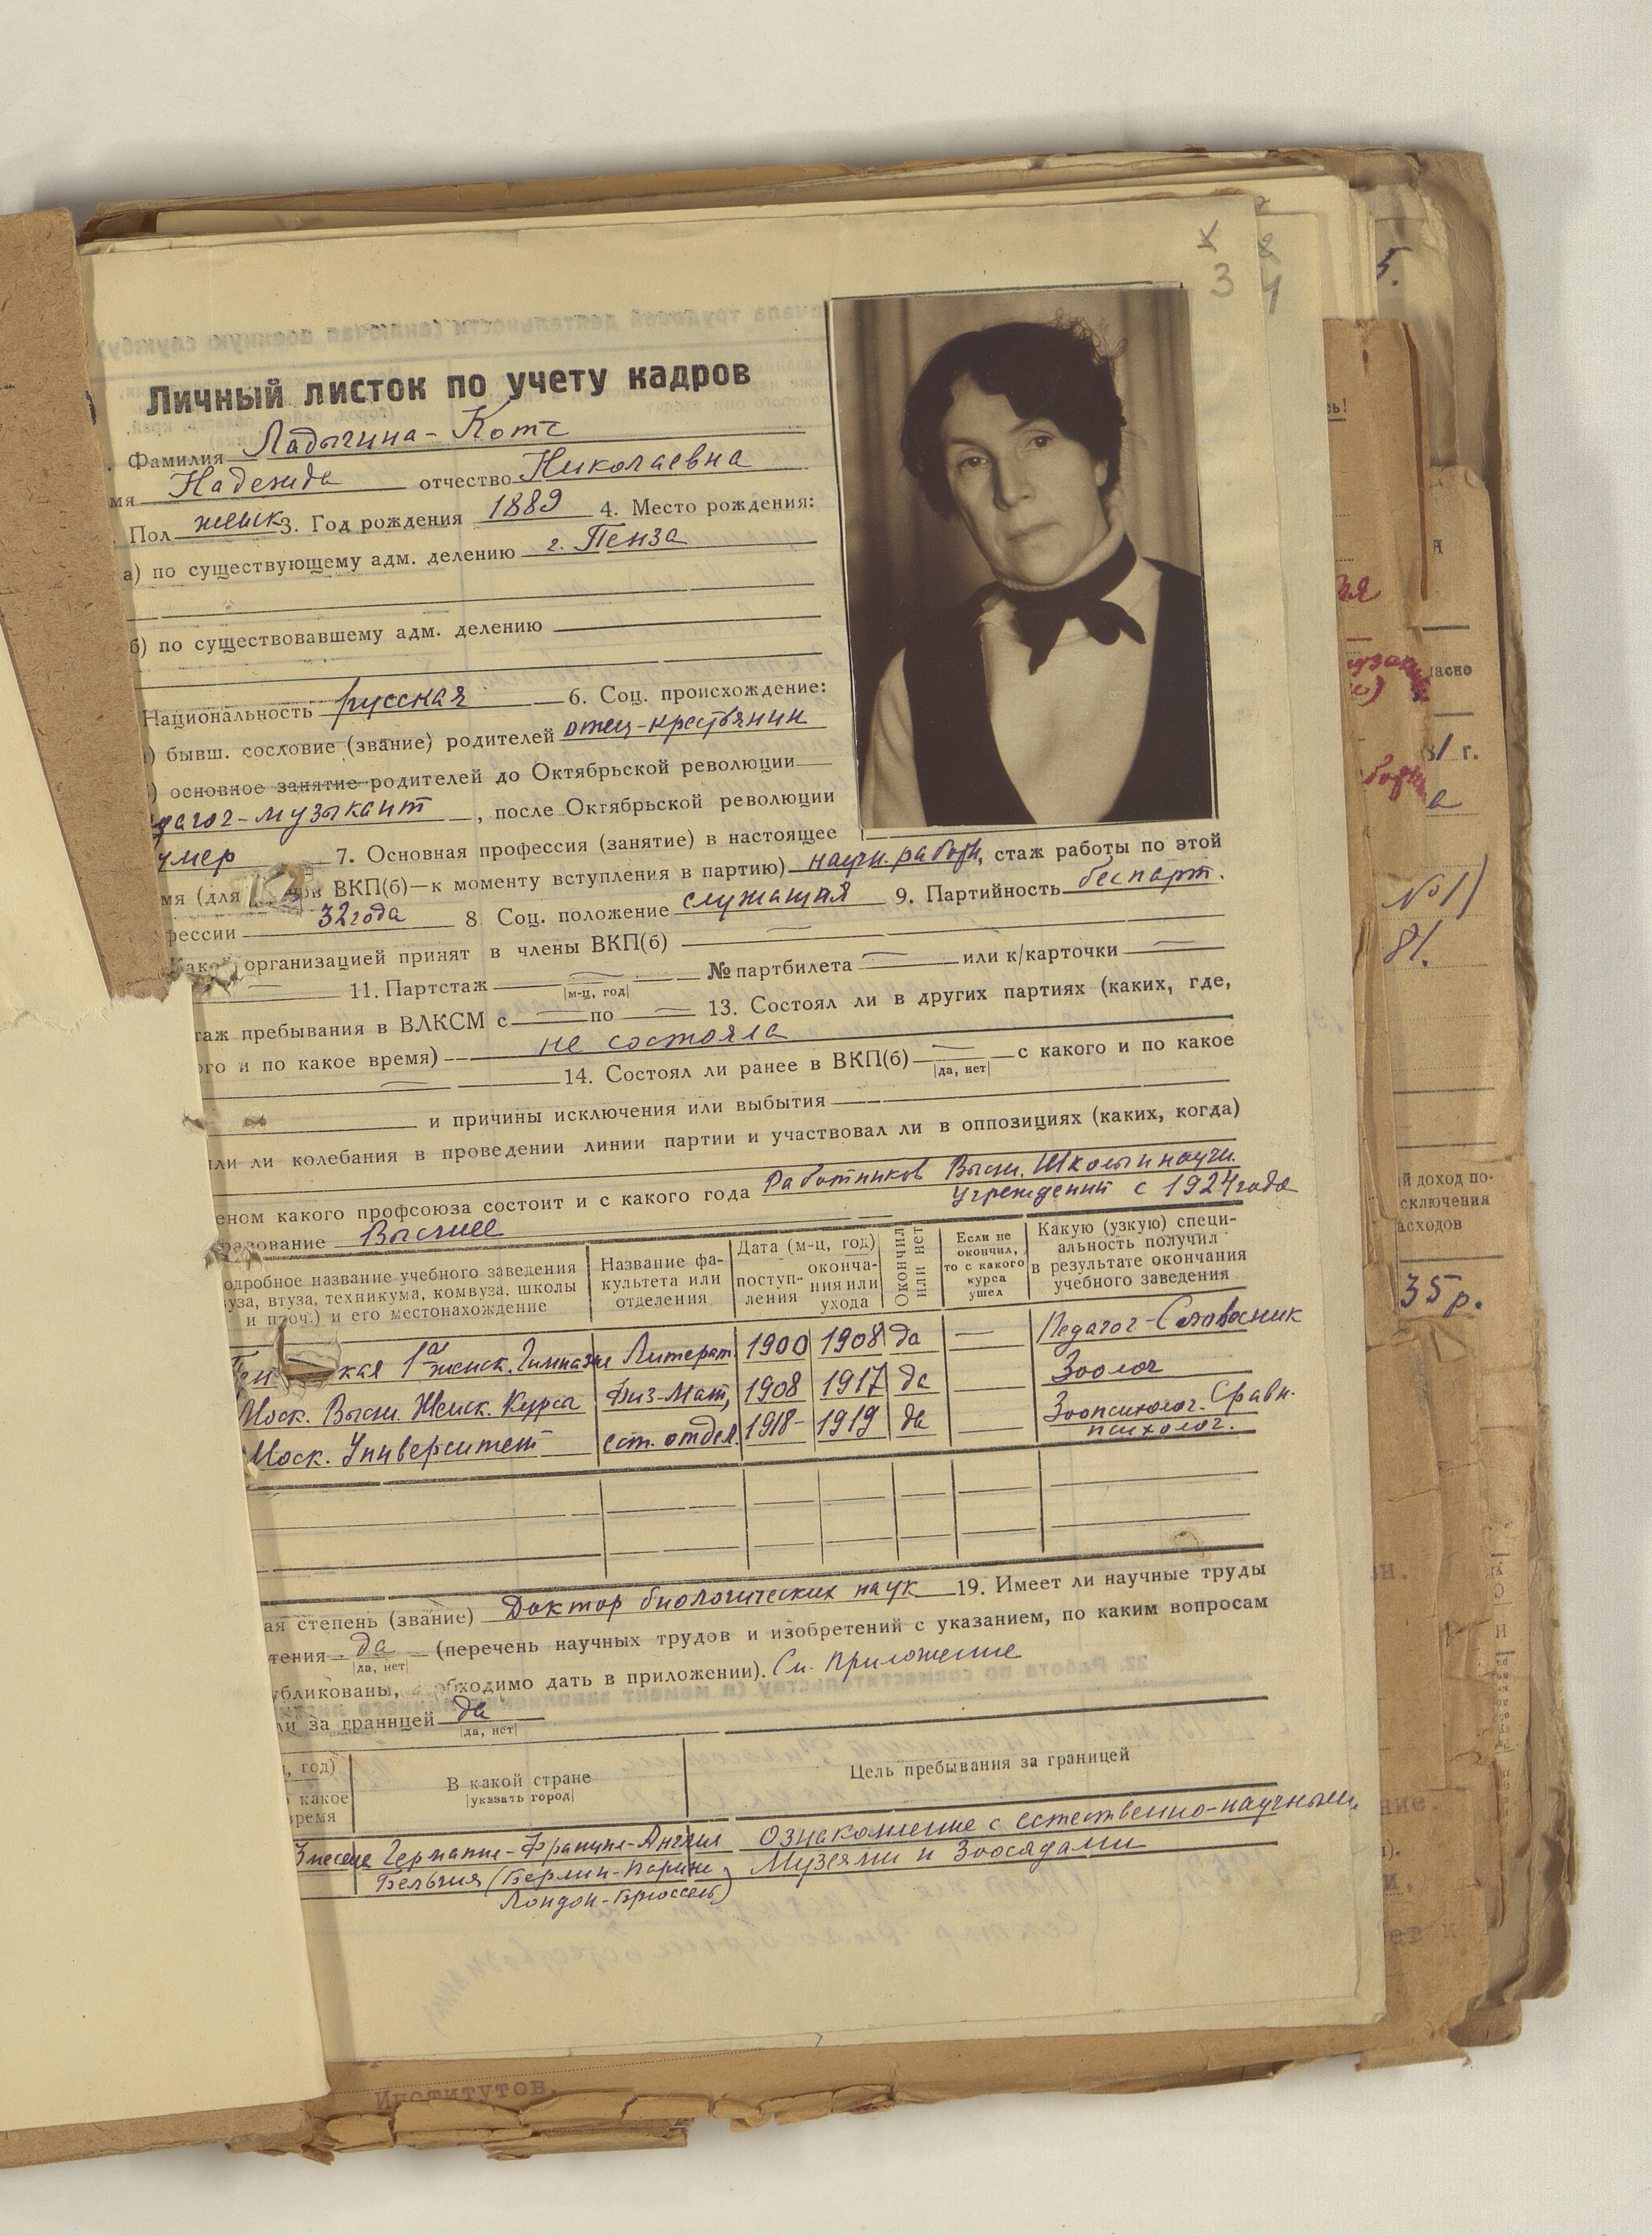 3
4
8
5.
Личный листок по учету кадров
Фамилия Ладыгина-Котс
мя Надежда отчество Николаевна
Пол женск 3. Год рождения 1889 4. Место рождения:
а) по существующему адм. делению г. Пенза
б) по существовавшему адм. делению
Национальность русская 6. Соц. происхождение:
) бывш. сословие (звание) родителей отец-крестьянин
) основное занятие родителей до Октябрьской революции
дагог-музыкант, после Октябрьской революции
умер 7. Основная профессия (занятие) в настоящее
мя (для ов ВКП(б)—к моменту вступления в партию) научн. работн, стаж работы по этой
фессии 32 года 8 Соц. положение служащая 9. Партийность беспарт.
Какой организацией принят в члены ВКП(б) —
— 11. Партстаж — № партбилета — или к/карточки —
|м-ц, год|
таж пребывания в ВЛКСМ с — по — 13. Состоял ли в других партиях (каких, где,
ого и по какое время) не состояла
— 14. Состоял ли ранее в ВКП(б) — с какого и по какое
|да, нет|
и причины исключения или выбытия
ли ли колебания в проведении линии партии и участвовал ли в оппозициях (каких, когда)
еном какого профсоюза состоит и с какого года Работников Высш. Школы и научн.
учреждений с 1924 года
разование Высшее
одробное название учебного заведения
уза, втуза, техникума, комвуза, школы
и проч.) и его местонахождение
Название фа-
культета или
отделения
Дата (м-ц, год)
поступ-
ления
оконча-
ния или
ухода
Окончил
или нет
Если не
окончил,
то с какого
курса
ушел
Какую (узкую) специ-
альность получил
в результате окончания
учебного заведения
Пен кая 1ая женск. Гимназия Литерат. 1900 1908 да — Педагог-Словесник
Моск. Высш. Женск. Курсы Физ-Мат, 1908 1917 да — Зоолог
Моск. Университет ест. отдел. 1918- 1919 да — Зоопсихолог. Сравн.
психолог.
ая степень (звание) Доктор биологических наук 19. Имеет ли научные труды
тения да (перечень научных трудов и изобретений с указанием, по каким вопросам
|да, нет|
убликованы, обходимо дать в приложении). См. приложение
ли за границей да
|да, нет|
, год)
какое
время
В какой стране
|указать город|
Цель пребывания за границей
3 месяца Германия-Франция-Англия Ознакомление с естественно-научными
Бельгия (Берлин-Париж, Музеями и Зоосадами
Лондон-Брюссель)
Институтов.
ласно
г.
№ 1)
81.
й доход по-
сключения
асходов
35 р.